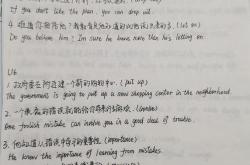 If you don't like the plan, you can drop out.
4. 你相信他吗?我敢肯定他知道的比他说出来的多。(let on)
Do you believe him? I'm sure he knows more than he's letting on.
U6
1. 政府要在附近建一个新的购物中心。(put up)
The government is going to put up a new shopping center in the neighborhood.
2. 一个愚蠢的错误就能给你带来好多麻烦。(involve)
One foolish mistake can involve you in a good deal of trouble.
3. 他知道从错误中学习的重要性 (importance)
He knows the importance of learning from mistakes.